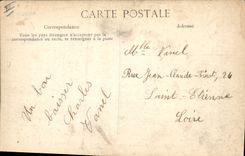 CARTE POSTALE
Correspondance
Adresse
Tous les pays étrangers n'acceptent pas
la correspondance au recto, se renseigner à la poste
Un bon
baiser
Charles
Vanel
Mlle Vanel
Rue Jean-Claude 26
Saint-Etienne
Loire